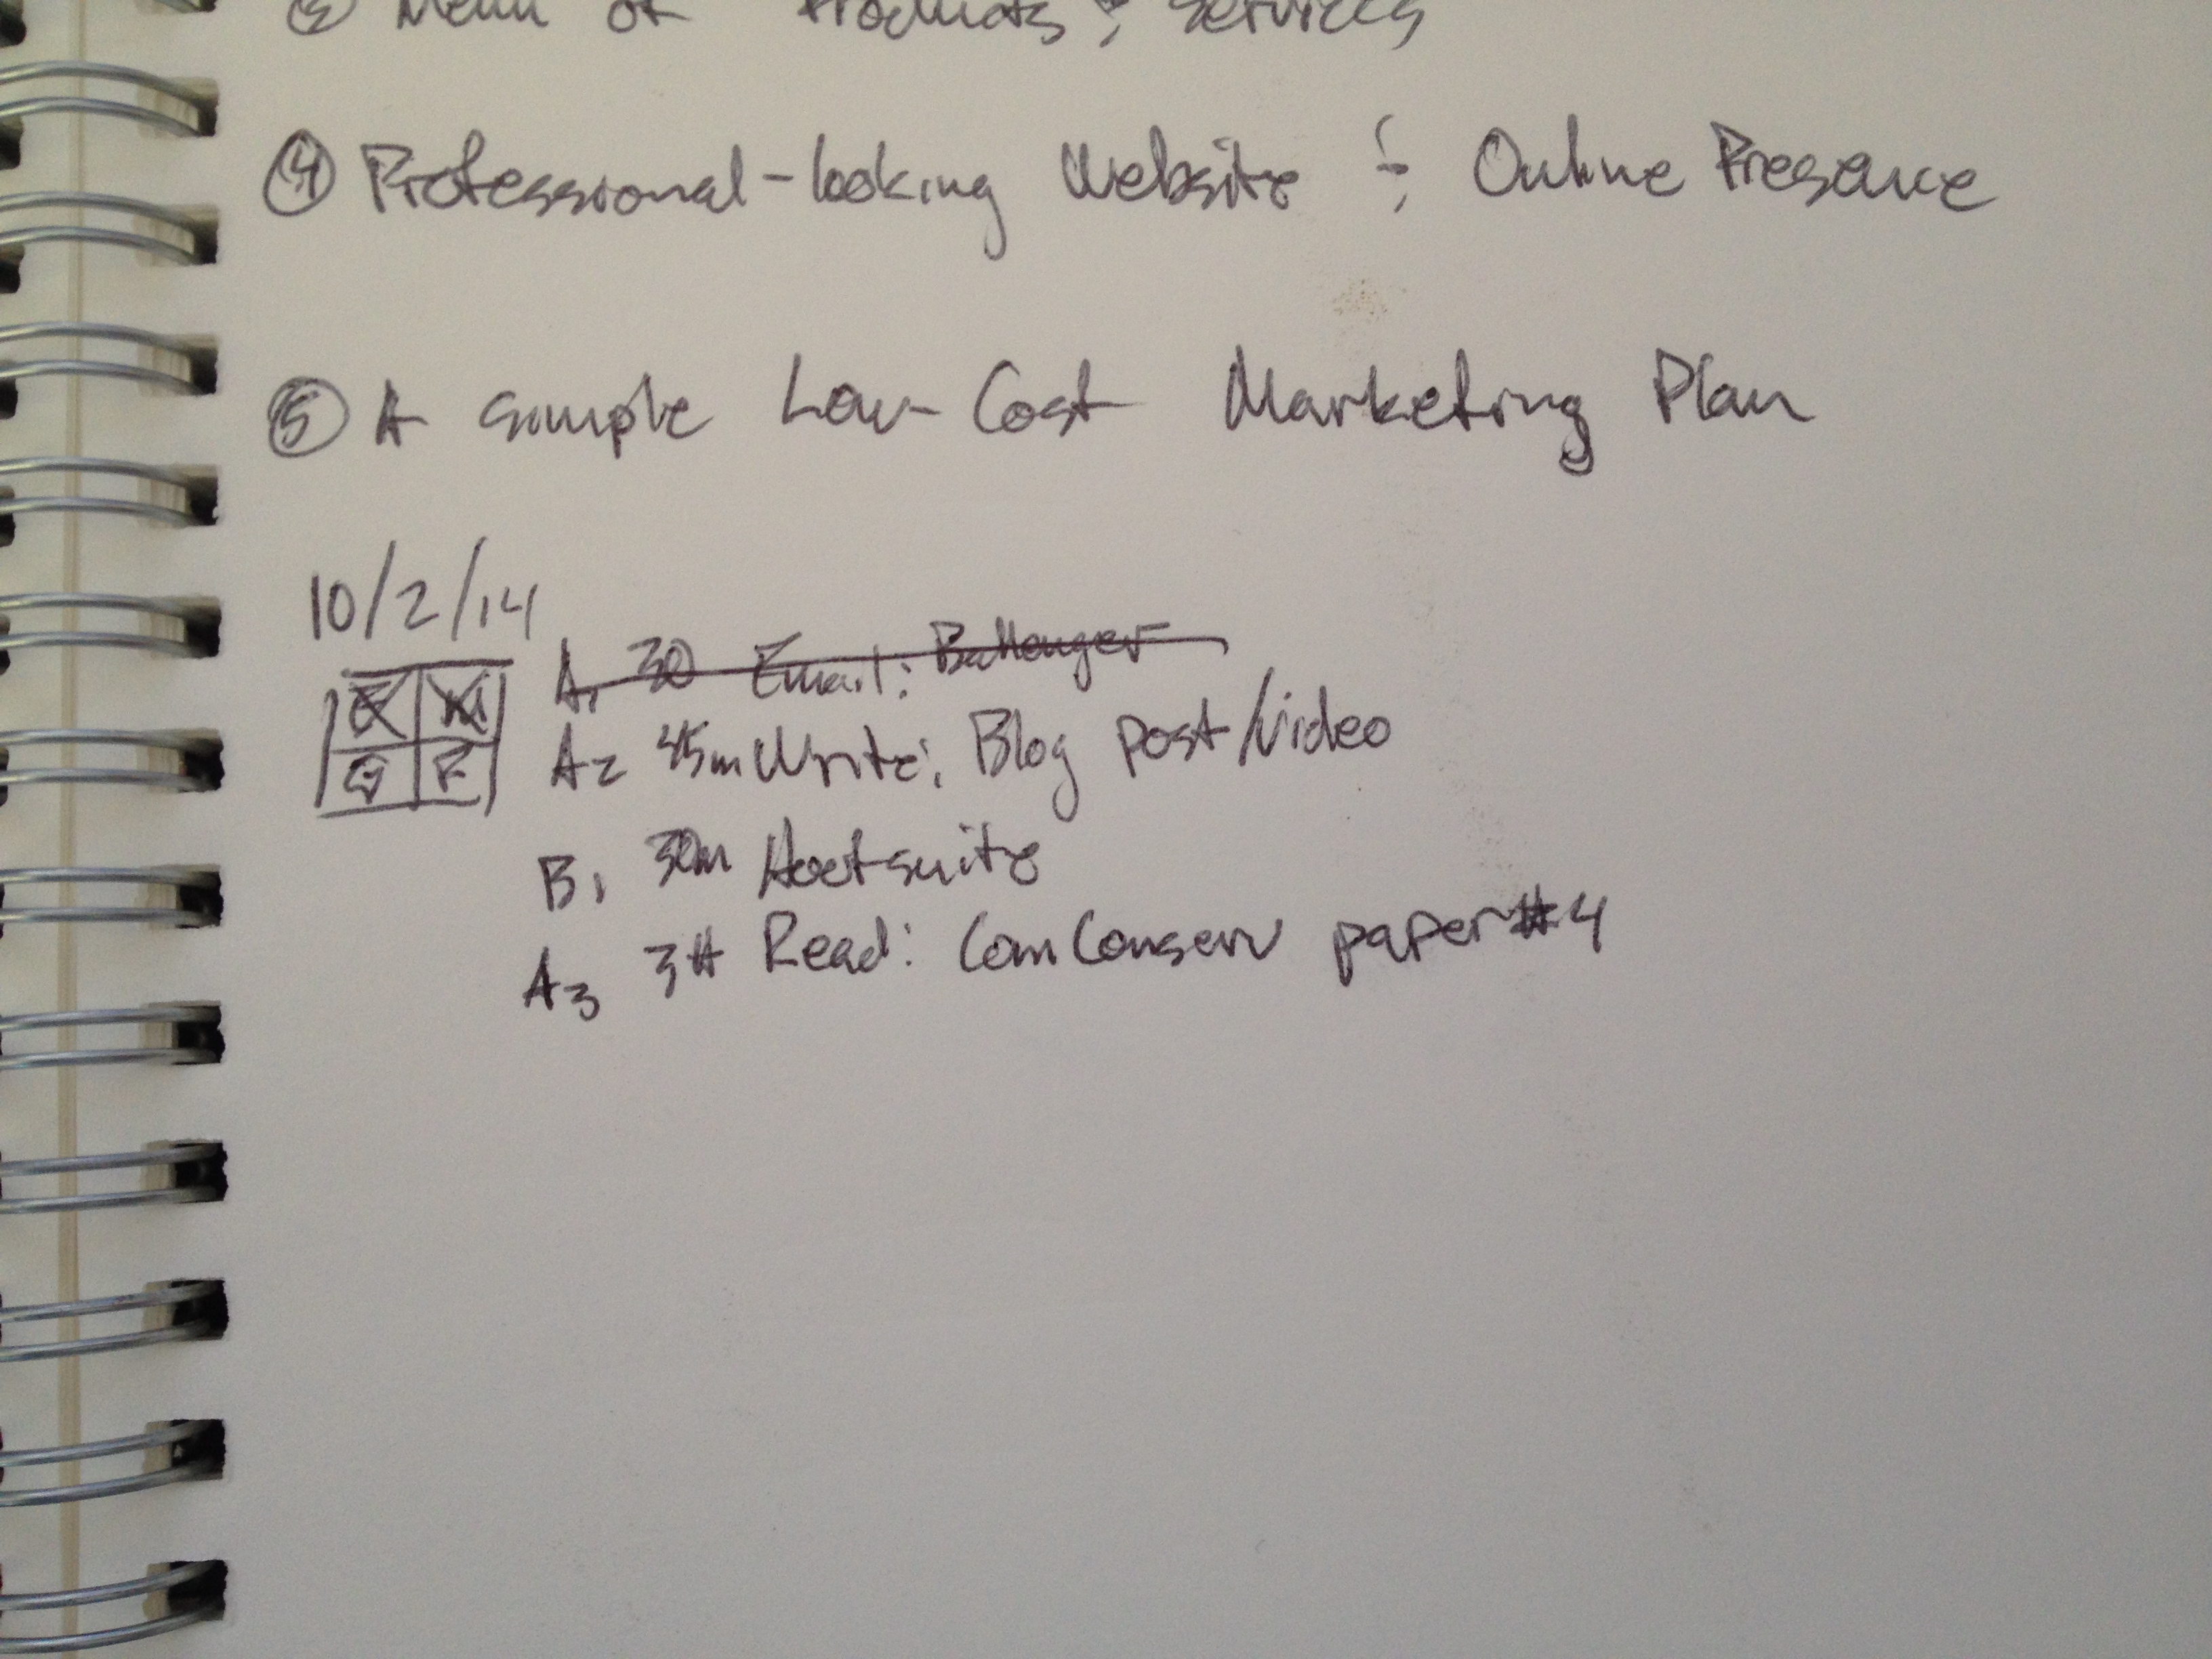 ③ Menu of Products & Services
④ Professional-looking Website & Online Presence
⑤ A simple Low-Cost Marketing Plan
10/2/14
A1 30 Email: Ballenger
A2 45m Write: Blog post/video
B1 30m Hootsuite
A3 3H Read: ComConserv paper #4
E M
G F